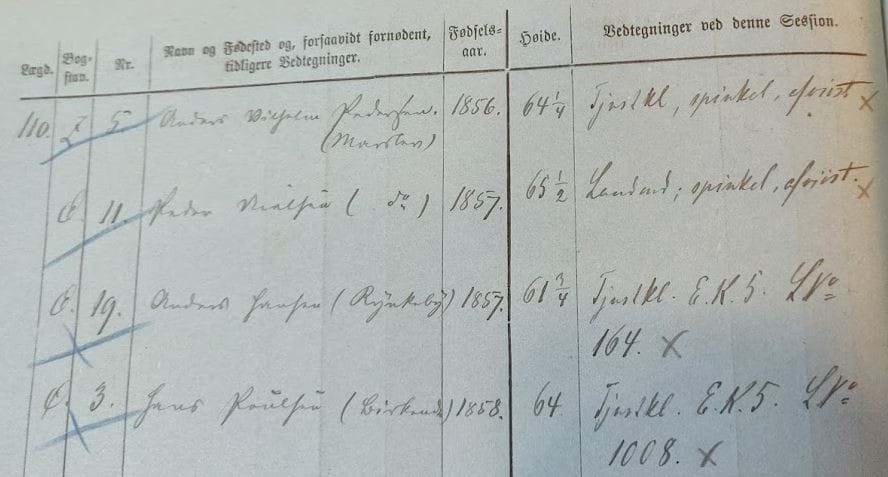 Lægd. Bog-stav. Nr. Navn og Fødested og, forsaavidt fornødent, tidligere Vedtegninger. Fødsels-aar. Høide. Vedtegninger ved denne Session.
110. 5. Anders Vilhelm Pedersen. 1856. 64 1/4 Tjustkl, spinkel, afviist x
(Marslev)
11. Peder Nielsen ( do ) 1857. 65 1/2 Landmd; spinkel, afviist. x
19. Anders Hansen (Rÿnkebÿ) 1857. 61 3/4 Tjustkl. E.K.5. LNo
164. x
3. Hans Poulsen (Birkende) 1858. 64 Tjustkl. E.K.5. LNo
1008. x